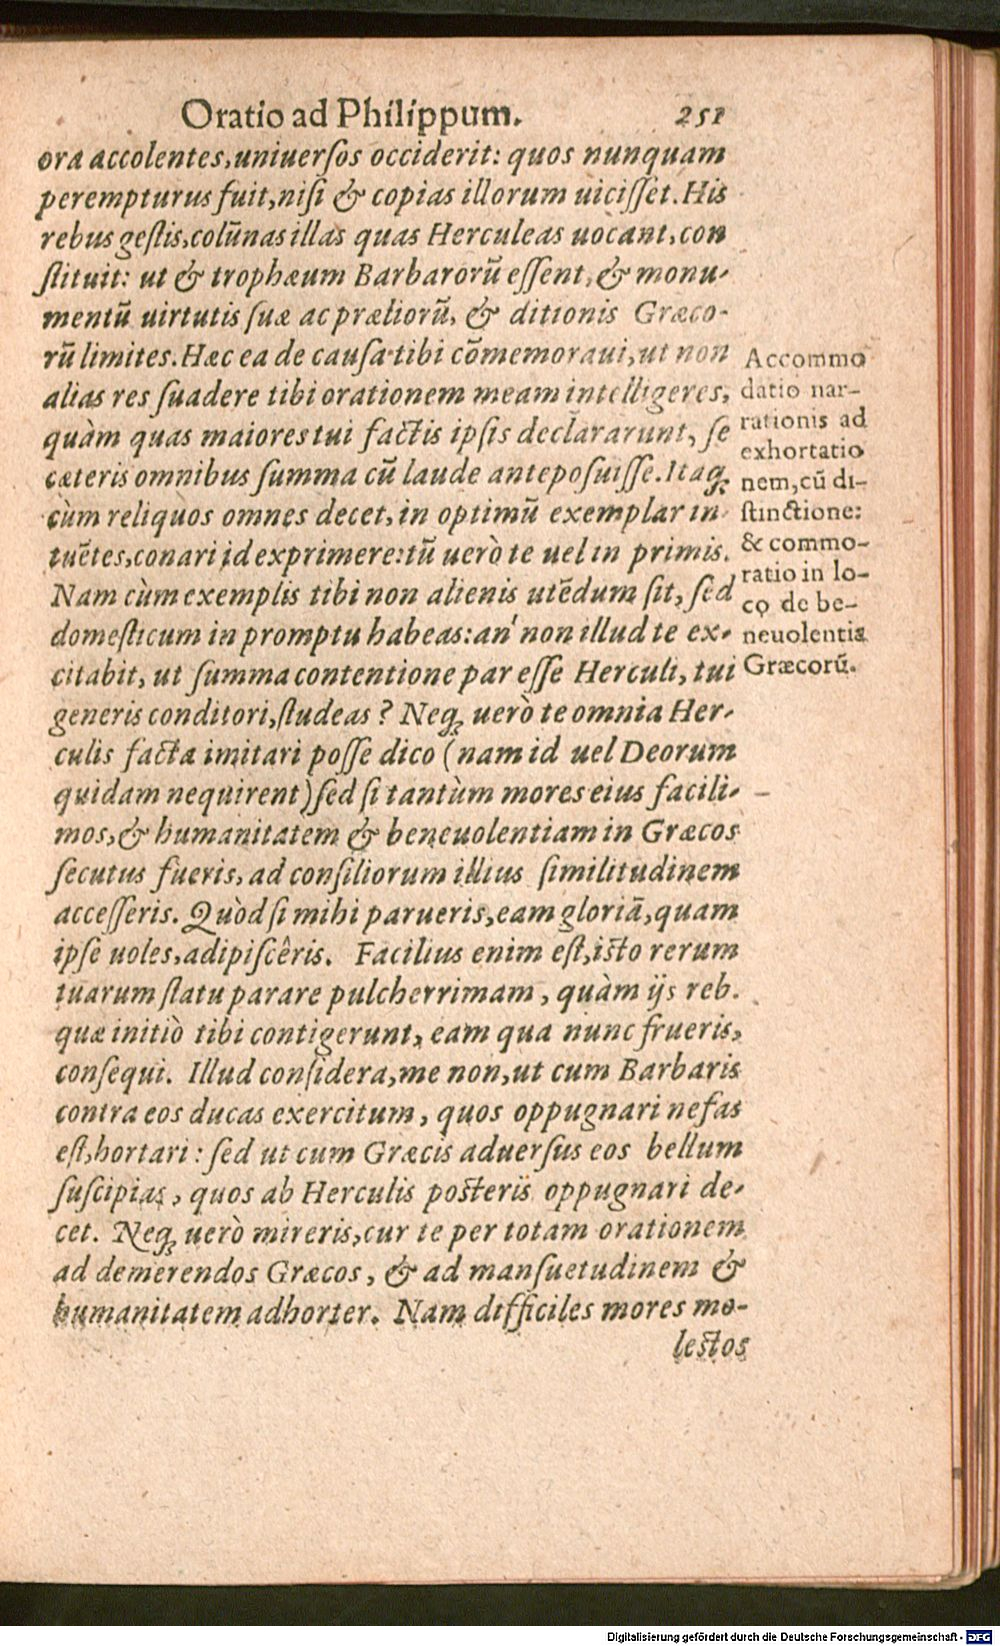 Oratio ad Philippum. 251
ora accolentes, uniuersos occiderit: quos nunquam
perempturus fuit, nisi & copias illorum uicisset. His
rebus gestis, colūnas illas quas Herculeas uocant, con
stituit: ut & trophæum Barbarorū essent, & monu-
mentū uirtutis suæ ac præliorū, & ditionis Græco-
rū limites. Hæc ea de causa tibi cōmemoraui, ut non
alias res suadere tibi orationem meam intelligeres,
quàm quas maiores tui factis ipsis declararunt, se
cæteris omnibus summa cū laude anteposuisse. Itaq;
cùm reliquos omnes decet, in optimū exemplar in
tuētes, conari id exprimere: tū uerò te uel in primis.
Nam cùm exemplis tibi non alienis utēdum sit, sed
domesticum in promptu habeas: an' non illud te ex-
citabit, ut summa contentione par esse Herculi, tui
generis conditori, studeas? Neq; uerò te omnia Her-
culis facta imitari posse dico (nam id uel Deorum
quidam nequirent) sed si tantùm mores eius facili-
mos, & humanitatem & beneuolentiam in Græcos
secutus fueris, ad consiliorum illius similitudinem
accesseris. Quòd si mihi parueris, eam gloriā, quam
ipse uoles, adipiscêris. Facilius enim est, isto rerum
tuarum statu parare pulcherrimam, quàm ijs reb.
quæ initiò tibi contigerunt, eam qua nunc frueris,
consequi. Illud considera, me non, ut cum Barbaris
contra eos ducas exercitum, quos oppugnari nefas
est, hortari: sed ut cum Græcis aduersus eos bellum
suscipias, quos ab Herculis posteris oppugnari de-
cet. Neq; uerò mireris, cur te per totam orationem
ad demerendos Græcos, & ad mansuetudinem &
humanitatem adhorter. Nam difficiles mores mo-
lestos
Accommo
datio nar-
rationis ad
exhortatio
nem, cū di-
stinctione:
& commo-
ratio in lo-
co de be-
neuolentia
Græcorū.
Digitalisierung gefördert durch die Deutsche Forschungsgemeinschaft - DFG